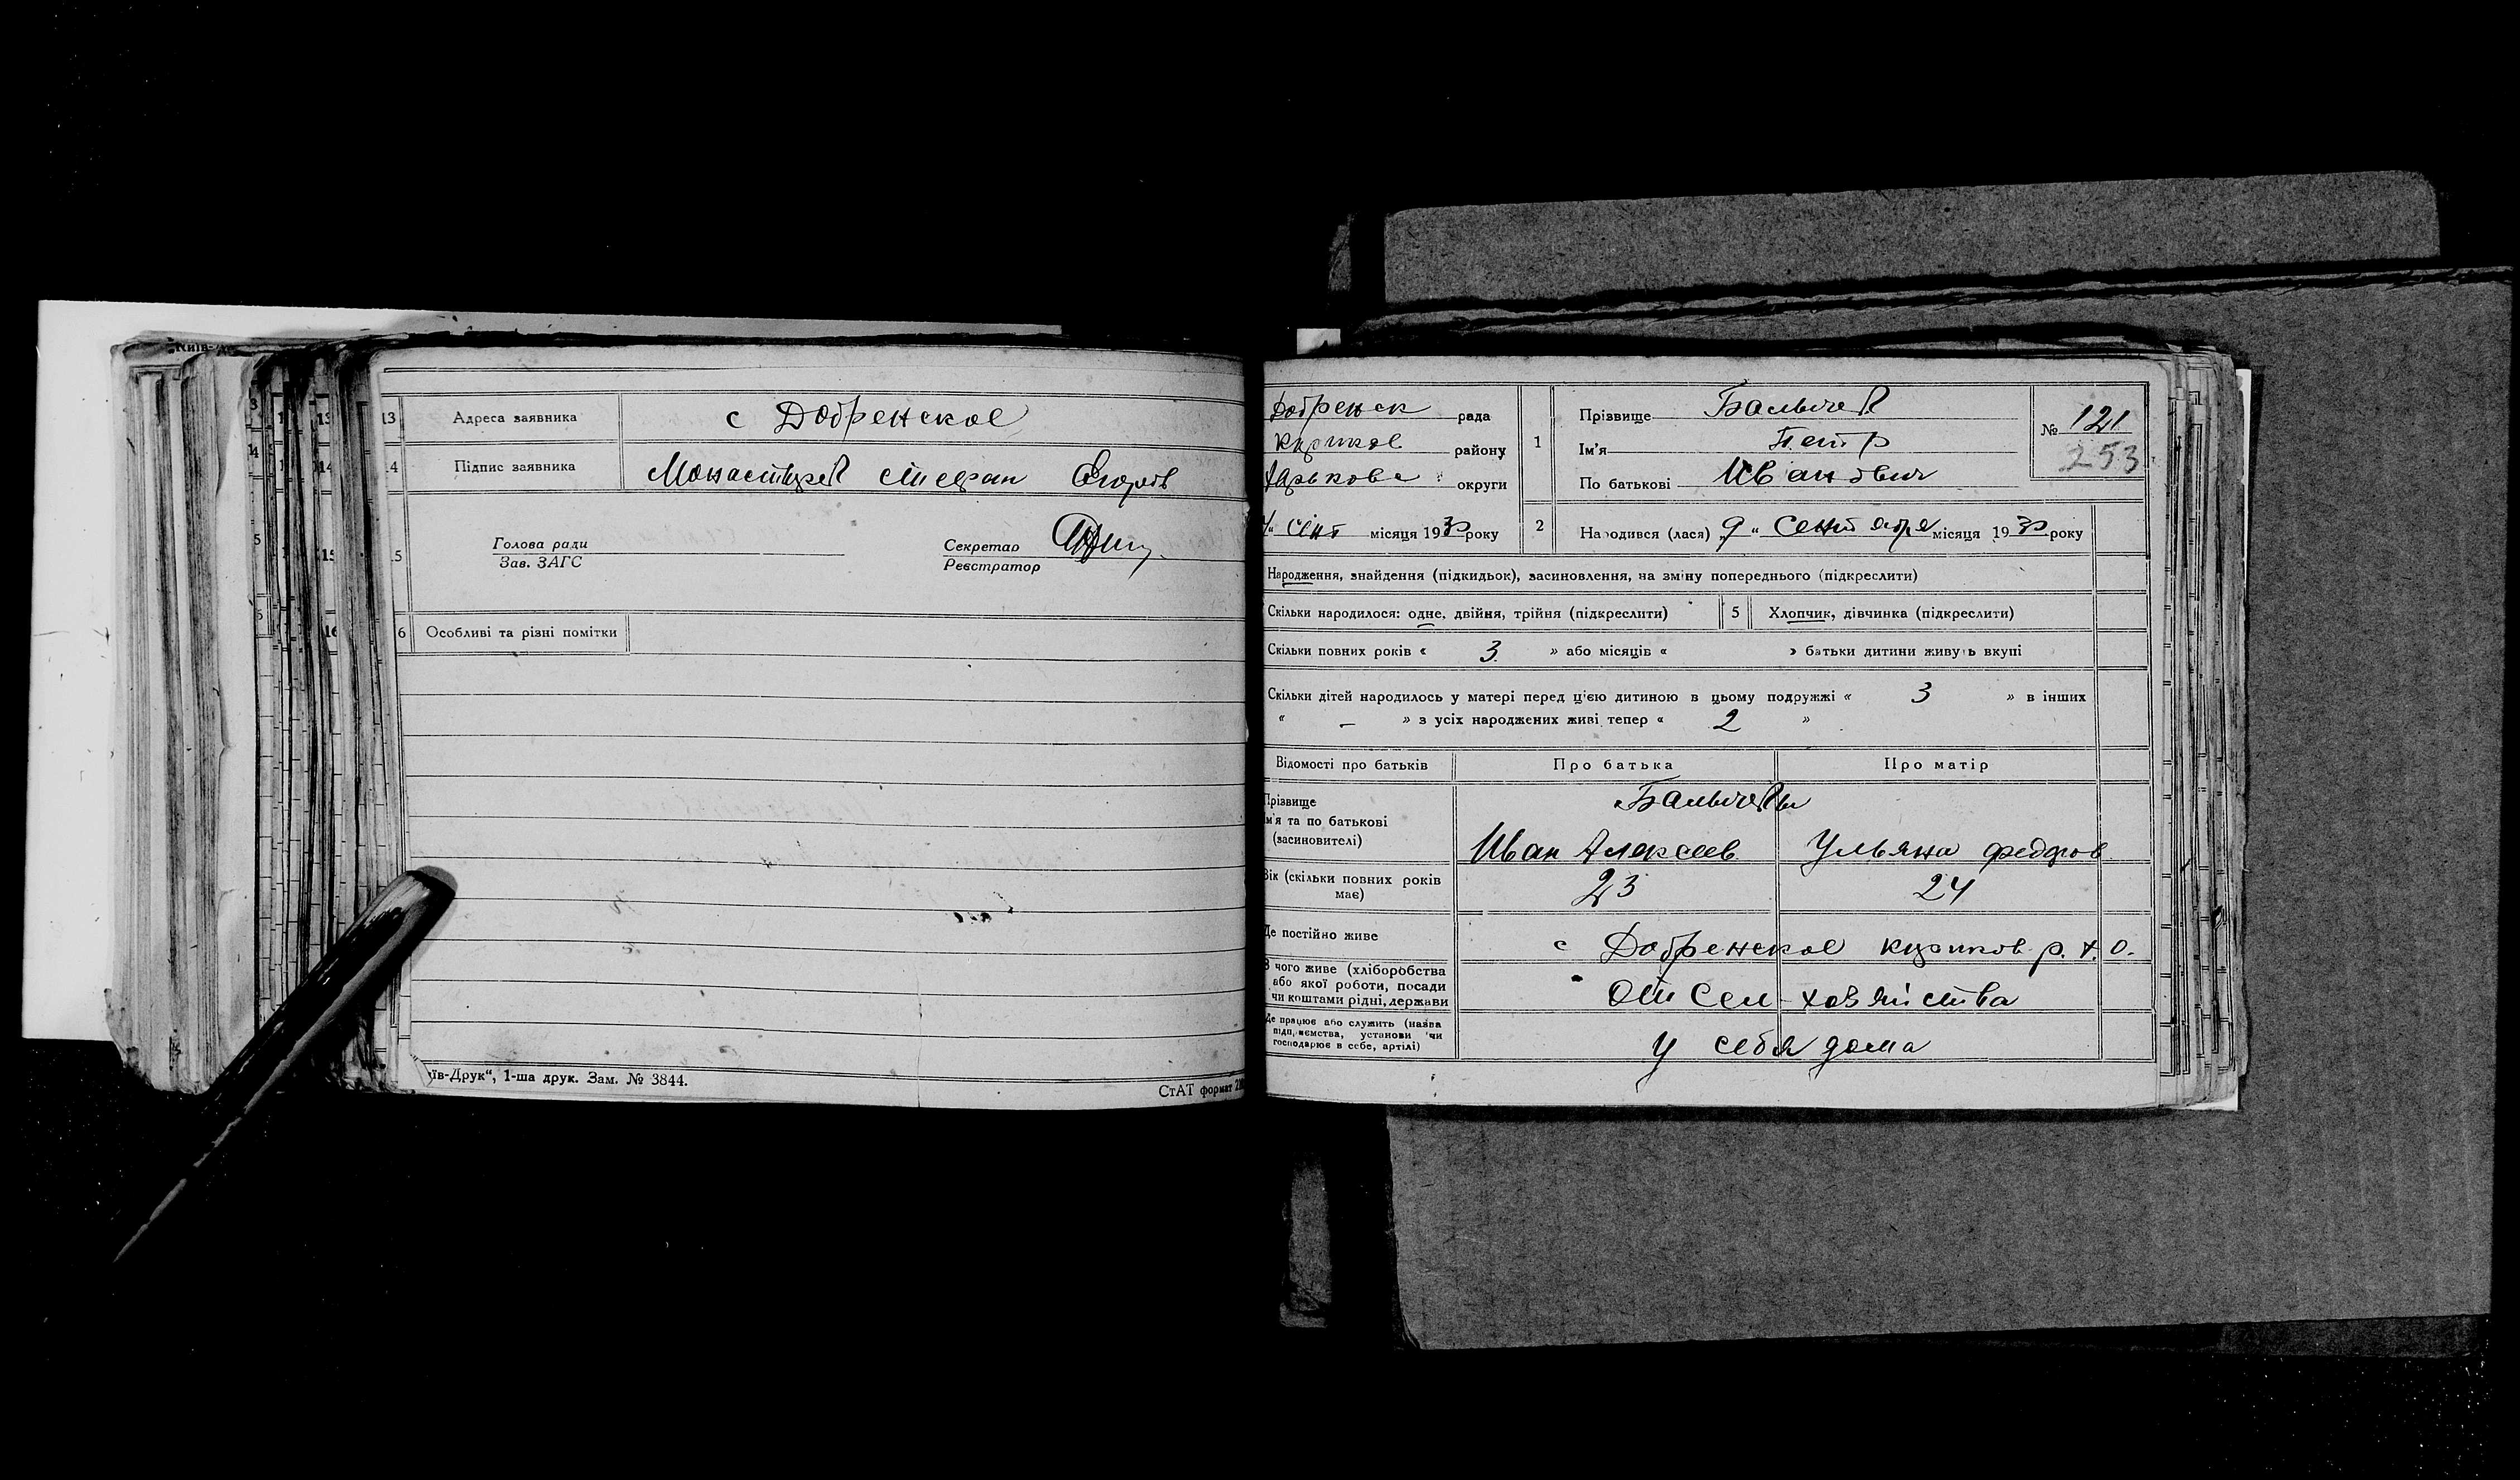 13 Адреса заявника с Добренское
14 Підпис заявника Монастырев Стефан Егоров
15 Голова ради
Зав. ЗАГС
Секретар
Реєстратор
6 Особливі та різні помітки
їв-Друк“, 1-ша друк. Зам. № 3844.
СтАТ формат
Добренск рада
района
району
Харькове округи
Сент місяця 1930 року
1 Прізвище
Ім'я Петр
По батькові Иванович
№ 121
253
2 Народився (лася) „9“ Сентября місяця 1930 року
Народження, знайдення (підкидьок), засиновлення, на зміну попереднього (підкреслити)
Скільки народилося: одне, двійня, трійня (підкреслити) 5 Хлопчик, дівчинка (підкреслити)
Скільки повних років « 3 » або місяців « » батьки дитини живуть вкупі
Скільки дітей народилось у матері перед цією дитиною в цьому подружжі « 3 » в інших
« – » з усіх народжених живі тепер « 2 »
Відомості про батьків Про батька Про матір
Прізвище
ім'я та по батькові
(засиновителі)
Иван Алексеев Ульяна Федоров
Вік (скільки повних років
має) 23 24
Де постійно живе с Добренское р. Х. О.
З чого живе (хліборобства
або якої роботи, посади
чи коштами рідні, держави От Сел-хозяйства
Де працює або служить (назва
підприємства, установи чи
господарює в себе, артілі) У себя дома